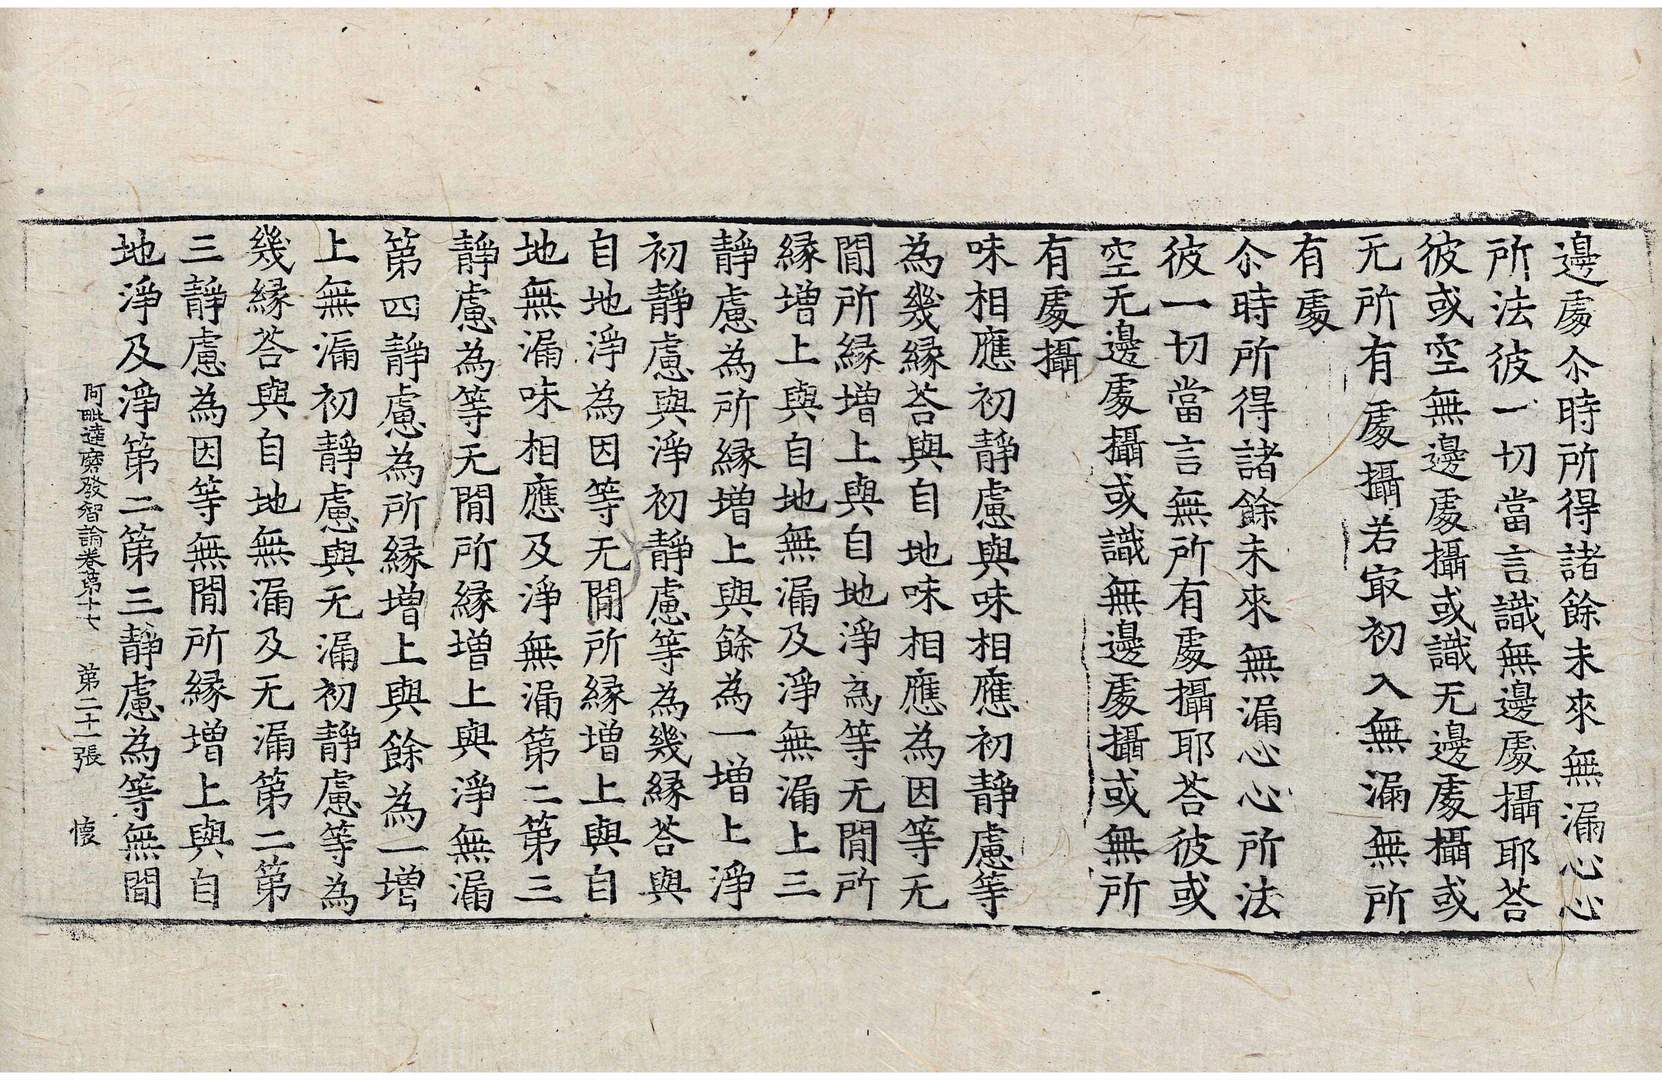 邊處尒時所得諸餘未來無漏心心
所法彼一切當言識無邊處攝耶荅
彼或空無邊處攝或識无邊處攝或
无所有處攝若㝡初入無漏無所
有處
尒時所得諸餘未來無漏心心所法
彼一切當言無所有處攝耶荅彼或
空无邊處攝或識無邊處攝或無所
有處攝
味相應初靜慮與味相應初靜慮等
為幾緣荅與自地味相應為因等无
閒所緣增上與自地淨為等无閒所
緣增上與自地無漏及淨無漏上三
靜慮為所緣增上與餘為一增上淨
初靜慮與淨初靜慮等為幾緣荅與
自地淨為因等无閒所緣增上與自
地無漏味相應及淨無漏第二第三
靜慮為等无閒所緣增上與淨無漏
第四靜慮為所緣增上與餘為一增
上無漏初靜慮與无漏初靜慮等為
幾緣荅與自地無漏及无漏第二第
三靜慮為因等無閒所緣增上與自
地淨及淨第二第三靜慮為等無閒
阿毗達磨發智論卷第十七 第二十一張 懷